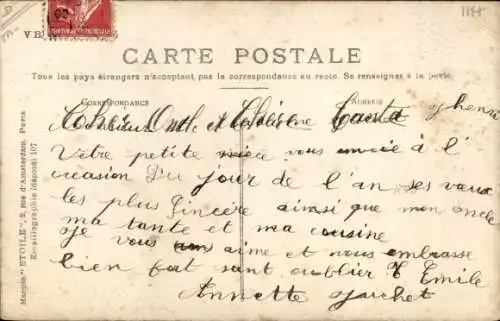 CARTE POSTALE
Tous les pays étrangers n'acceptant pas la correspondance au recto. Se renseigner à la poste.
CORRESPONDANCE
ADRESSE
Marque "ETOILE", 2, rue d'Amsterdam. Paris
Emaillographie (déposé) 107
Cher Oncle et Chère Tante
Votre petite nièce vous envoie à l'
occasion Du jour de l'an ses vœux
les plus Sincère ainsi que mon oncle
ma tante et ma cousine
Je vous aime et vous embrasse
bien fort sant oublier Emile
Annette